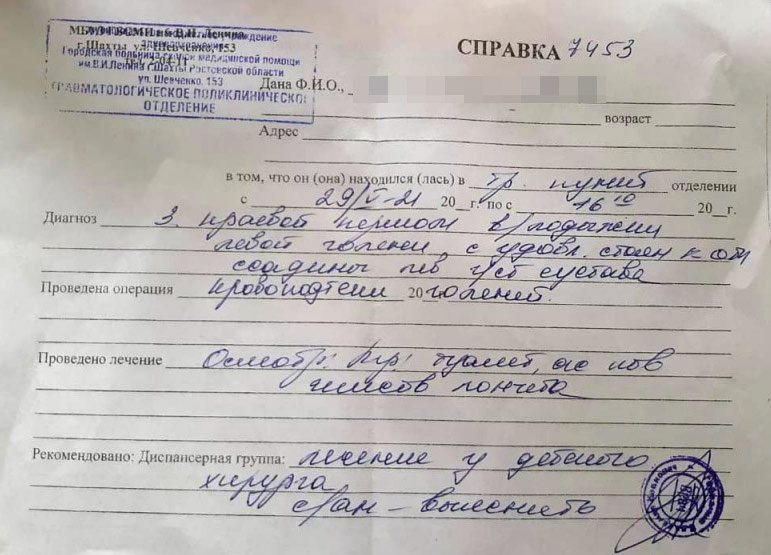 МБУЗ БСМП им. В.И. Ленина
г.Шахты ул. Шевченко, 153
учреждение
здравоохранения
Городская больница скорой медицинской помощи
им.В.И.Ленина г.Шахты Ростовской области
ул. Шевченко, 153
ТРАВМАТОЛОГИЧЕСКОЕ ПОЛИКЛИНИЧЕСКОЕ
ОТДЕЛЕНИЕ
СПРАВКА 7453
Дана Ф.И.О.,
возраст
Адрес
в том, что он (она) находился (лась) в тр. пункт отделении
с 29/V-21 20 г. по с 16 10 20 г.
Диагноз З. краевой перелом в/лодыжки
левой голени с удовл. стоян к отл
ссадины лев г/ст сустава
Проведена операция кровоподтеки 20 голеней.
Проведено лечение Осмотр: туалет, ас пов
гипсов лонгета
Рекомендовано: Диспансерная группа: лечение у детского
хирурга
с/ан - выяснить